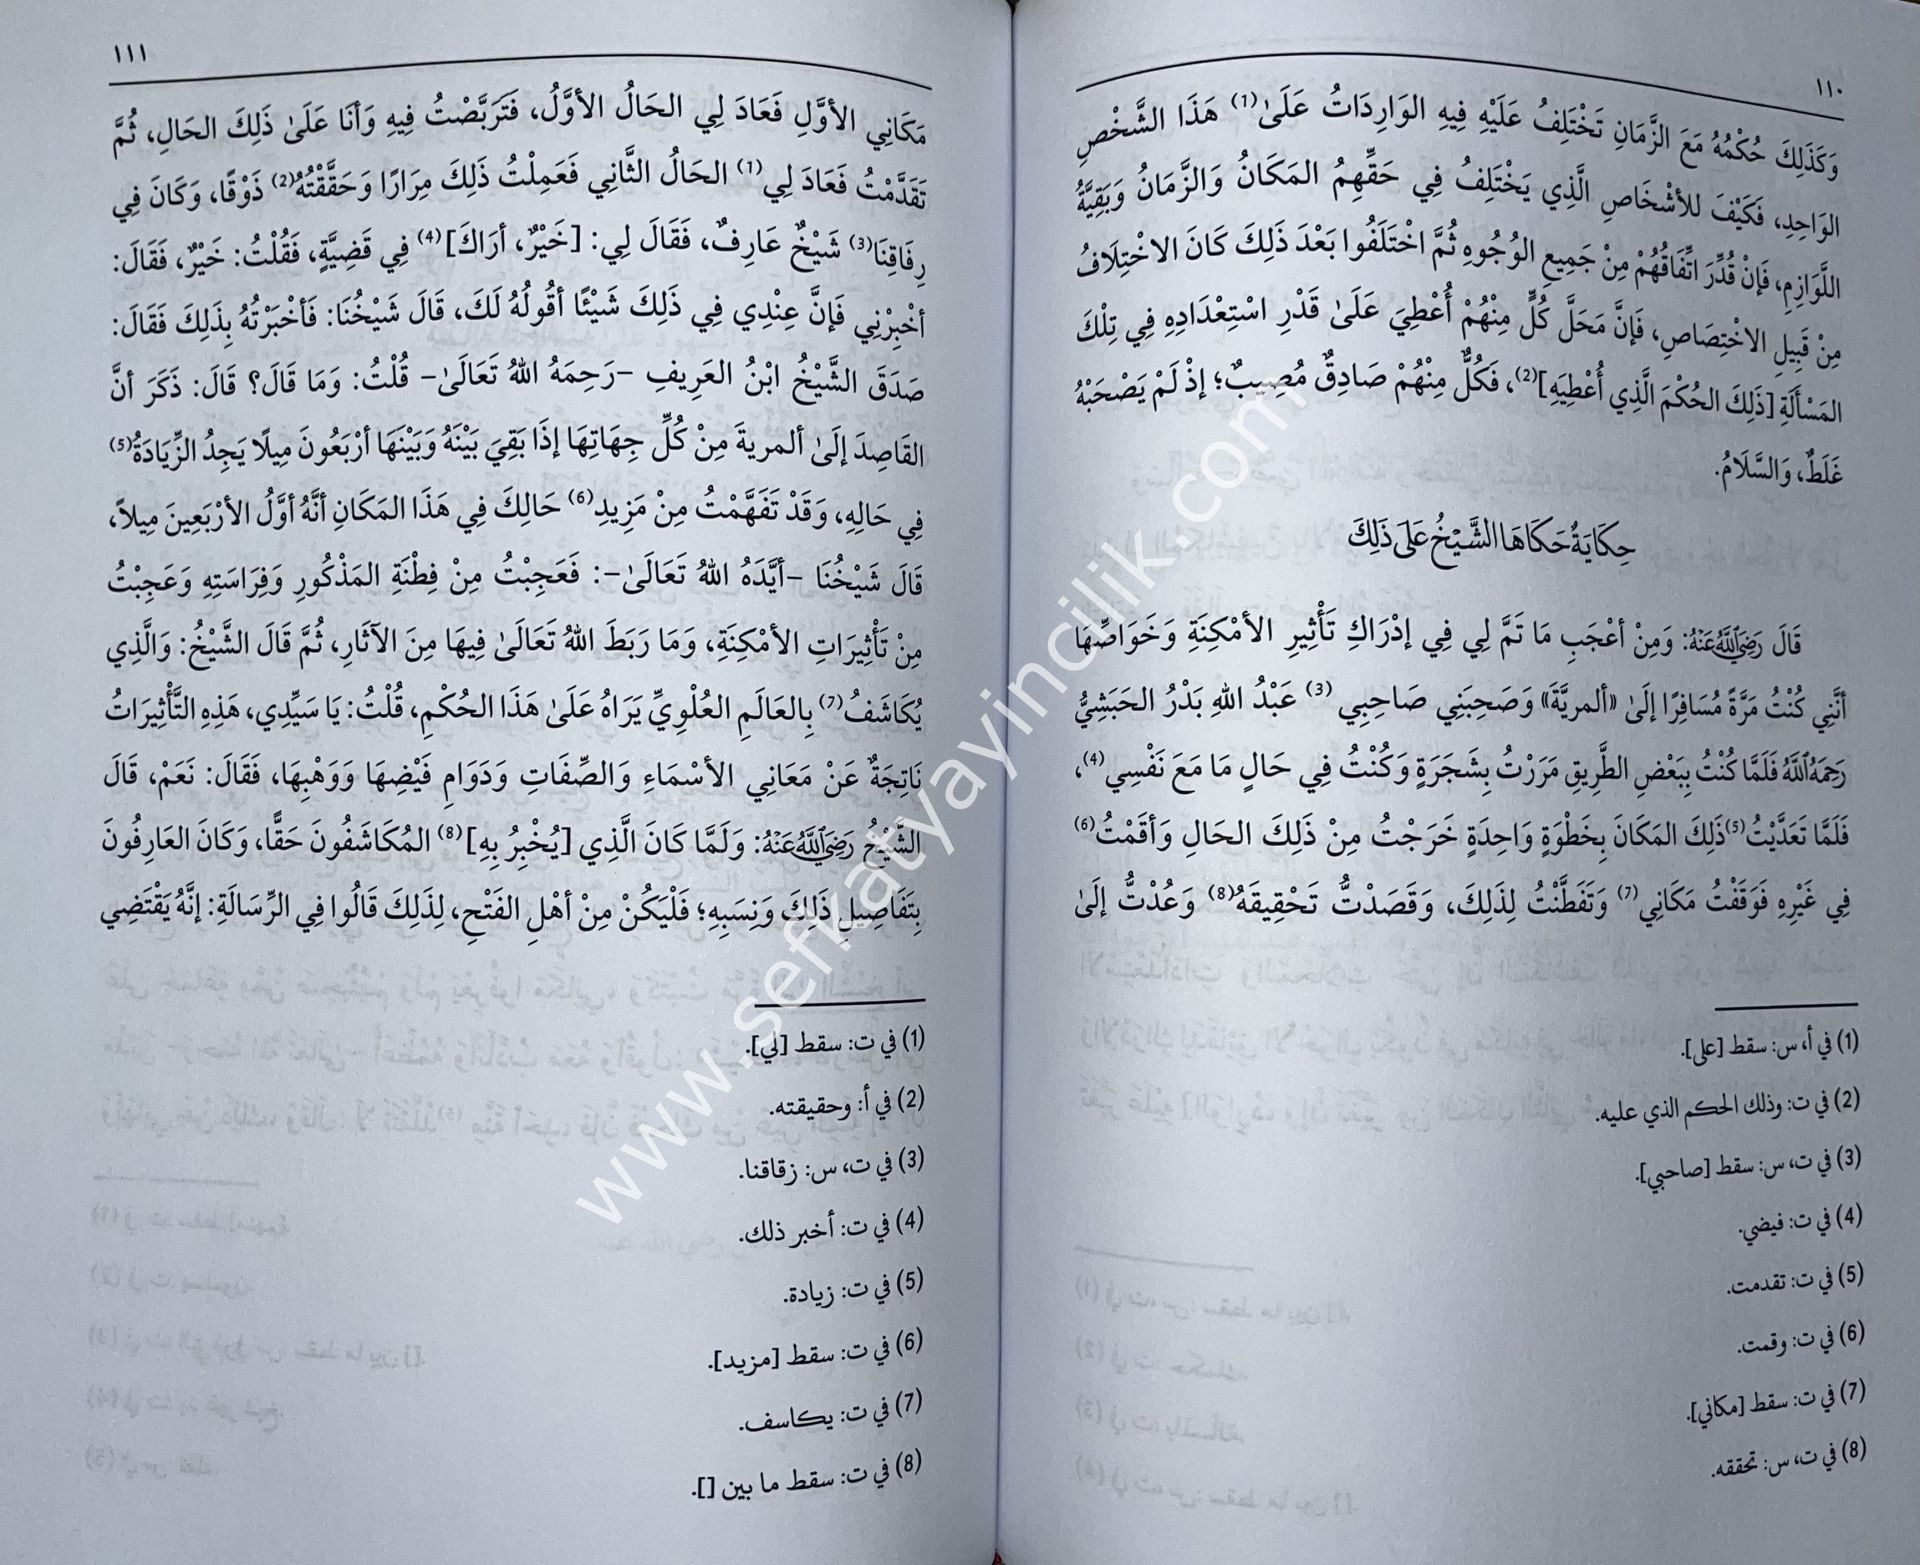 ١١٠
وَكَذَلِكَ حُكْمُهُ مَعَ الزَّمَانِ تَخْتَلِفُ عَلَيْهِ فِيهِ الوَارِدَاتُ عَلَىٰ(1) هَذَا الشَّخْصِ
الوَاحِدِ، فَكَيْفَ للأَشْخَاصِ الَّذِي يَخْتَلِفُ فِي حَقِّهِمُ المَكَانُ وَالزَّمَانُ وَبَقِيَّةُ
اللَّوَازِمِ، فَإِنْ قُدِّرَ اتِّفَاقُهُمْ مِنْ جَمِيعِ الوُجُوهِ ثُمَّ اخْتَلَفُوا بَعْدَ ذَلِكَ كَانَ الاخْتِلَافُ
مِنْ قَبِيلِ الاخْتِصَاصِ، فَإِنَّ مَحَلَّ كُلٍّ مِنْهُمْ أُعْطِيَ عَلَىٰ قَدْرِ اسْتِعْدَادِهِ فِي تِلْكَ
المَسْأَلَةِ [ذَلِكَ الحُكْمَ الَّذِي أُعْطِيَهِ](2)، فَكُلٌّ مِنْهُمْ صَادِقٌ مُصِيبٌ؛ إِذْ لَمْ يَصْحَبْهُ
غَلَطٌ، وَالسَّلَامُ.
حِكَايَةٌ حَكَاهَا الشَّيْخُ عَلَى ذَلِكَ
قَالَ رَضِيَ اللَّهُ عَنْهُ: وَمِنْ أعْجَبِ مَا تَمَّ لِي فِي إدْرَاكِ تَأْثِيرِ الأمْكِنَةِ وَخَوَاصِّهَا
أنَّنِي كُنْتُ مَرَّةً مُسَافِرًا إلَىٰ «ألمريَّةَ» وَصَحِبَنِي صَاحِبِي (3) عَبْدُ اللهِ بَدْرُ الحَبَشِيُّ
رَحِمَهُ اللَّهُ فَلَمَّا كُنْتُ بِبَعْضِ الطَّرِيقِ مَرَرْتُ بِشَجَرَةٍ وَكُنْتُ فِي حَالٍ مَا مَعَ نَفْسِي(4)،
فَلَمَّا تَعَدَّيْتُ(5)ذَلِكَ المَكَانَ بِخَطْوَةٍ وَاحِدَةٍ خَرَجْتُ مِنْ ذَلِكَ الحَالِ وَأقَمْتُ(6)
فِي غَيْرِهِ فَوَقَفْتُ مَكَانِي(7) وَتَفَطَّنْتُ لِذَلِكَ، وَقَصَدْتُّ تَحْقِيقَهُ(8) وَعُدْتُّ إلَىٰ
(1) في أ، س: سقط [على].
(2) في ت: وذلك الحكم الذي عليه.
(3) في ت، س: سقط [صاحبي].
(4) في ت: فيضي.
(5) في ت: تقدمت.
(6) في ت: وقمت.
(7) في ت: سقط [مكاني].
(8) في ت، س: تحققه.
١١١
مَكَانِي الأوَّلِ فَعَادَ لِي الحَالُ الأوَّلُ، فَتَرَبَّصْتُ فِيهِ وَأنَا عَلَىٰ ذَلِكَ الحَالِ، ثُمَّ
تَقَدَّمْتُ فَعَادَ لِي(1) الحَالُ الثَّانِي فَعَمِلْتُ ذَلِكَ مِرَارًا وَحَقَّقْتُهُ(2) ذَوْقًا، وَكَانَ فِي
رِفَاقِنَا(3) شَيْخٌ عَارِفٌ، فَقَالَ لِي: [خَيْرٌ، أرَاكَ](4) فِي قَضِيَّةٍ، فَقُلْتُ: خَيْرٌ، فَقَالَ:
أخْبِرْنِي فَإِنَّ عِنْدِي فِي ذَلِكَ شَيْئًا أقُولُهُ لَكَ، قَالَ شَيْخُنَا: فَأخْبَرْتُهُ بِذَلِكَ فَقَالَ:
صَدَقَ الشَّيْخُ ابْنُ العَرِيفِ –رَحِمَهُ اللهُ تَعَالَىٰ– قُلْتُ: وَمَا قَالَ؟ قَالَ: ذَكَرَ أنَّ
القَاصِدَ إلَىٰ ألمريةَ مِنْ كُلِّ جِهَاتِهَا إذَا بَقِيَ بَيْنَهُ وَبَيْنَهَا أرْبَعُونَ مِيلًا يَجِدُ الزِّيَادَةُ(5)
فِي حَالِهِ، وَقَدْ تَفَهَّمْتُ مِنْ مَزِيدِ(6) حَالِكَ فِي هَذَا المَكَانِ أنَّهُ أوَّلُ الأرْبَعِينَ مِيلاً،
قَالَ شَيْخُنَا –أيَّدَهُ اللهُ تَعَالَىٰ–: فَعَجِبْتُ مِنْ فِطْنَةِ المَذْكُورِ وَفِرَاسَتِهِ وَعَجِبْتُ
مِنْ تَأْثِيرَاتِ الأمْكِنَةِ، وَمَا رَبَطَ اللهُ تَعَالَىٰ فِيهَا مِنَ الآثَارِ، ثُمَّ قَالَ الشَّيْخُ: وَالَّذِي
يُكَاشَفُ(7) بِالعَالَمِ العُلْوِيِّ يَرَاهُ عَلَىٰ هَذَا الحُكْمِ، قُلْتُ: يَا سَيِّدِي، هَذِهِ التَّأْثِيرَاتُ
نَاتِجَةٌ عَنْ مَعَانِي الأسْمَاءِ وَالصِّفَاتِ وَدَوَامِ فَيْضِهَا وَوَهْبِهَا، فَقَالَ: نَعَمْ، قَالَ
الشَّيْخُ رَضِيَ اللَّهُ عَنْهُ: وَلَمَّا كَانَ الَّذِي [يُخْبِرُ بِهِ](8) المُكَاشَفُونَ حَقًّا، وَكَانَ العَارِفُونَ
بِتَفَاصِيلِ ذَلِكَ وَنَسَبِهِ؛ فَلْيَكُنْ مِنْ أهْلِ الفَتْحِ، لِذَلِكَ قَالُوا فِي الرِّسَالَةِ: إنَّهُ يَقْتَضِي
(1) في ت: سقط [لي].
(2) في أ: وحقيقته.
(3) في ت، س: زقاقنا.
(4) في ت: أخبر ذلك.
(5) في ت: زيادة.
(6) في ت: سقط [مزيد].
(7) في ت: يكاسف.
(8) في ت: سقط ما بين [].
www.sefkatyayincilik.com